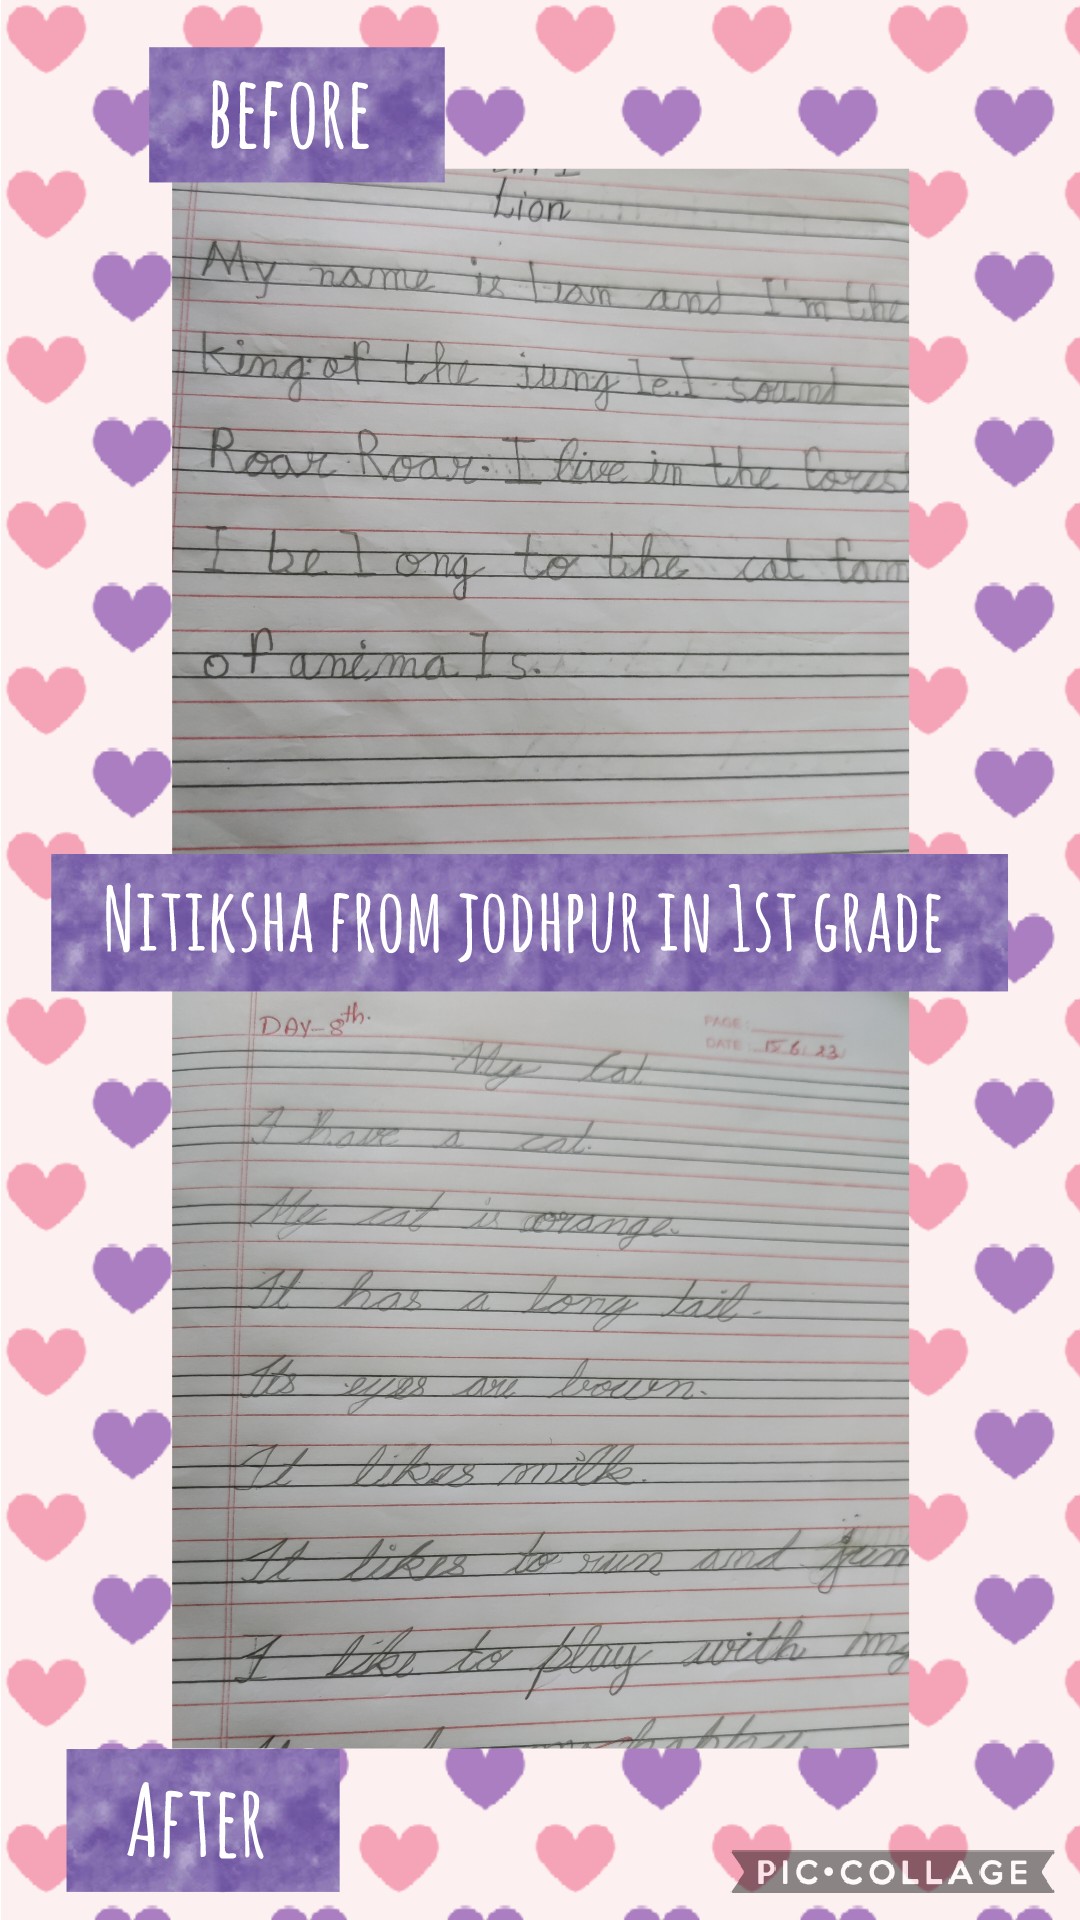 BEFORE
Lion
My name is Lion and I'm the
king of the jungle. I sound
Roar Roar. I live in the fores
I belong to the cat fam
of animals.
NITIKSHA FROM JODHPUR IN 1ST GRADE
DAY-8th.
PAGE:
DATE: 15.6.23
My Cat
I have a cat.
My cat is orange.
It has a long tail.
Its eyes are bown.
It likes milk.
It likes to run and jum
I like to play with my
AFTER
PIC•COLLAGE